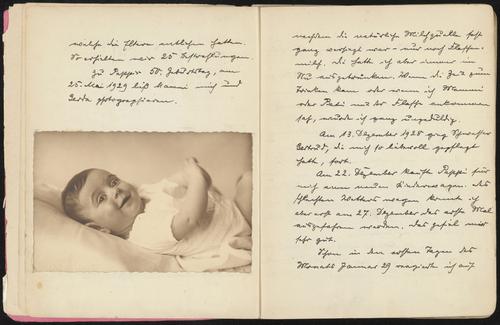 welche die Eltern mitlesen hatten.
So erhielten wir 25
Zu Pappis 50. Geburtstag, am
25. Mai 1929 ließ Mammi mich und
Gerda photographieren.
nachdem die natürliche Milchquelle fast
ganz versagt war - nur noch Flaschen-
milch, die hatte ich aber immer im
Nu ausgetrunken. Wenn die Zeit zum
Trinken kam oder wenn ich Mammi
oder Pappi mit der Flasche ankommen
sah, wurde ich ganz ungeduldig.
Am 13. Dezember 1928 ging Schwester
Gertrud, die mich so liebevoll gepflegt
hatte, fort.
Am 22. Dezember kaufte Pappi für
mich einen neuen Kinderwagen. Des
schlechten Wetters wegen konnte ich
aber erst am 27. Dezember das erste Mal
ausgefahren werden. Das gefiel mir
sehr gut.
Schon in den ersten Tagen des
Monats Januar 29 reagierte ich auf